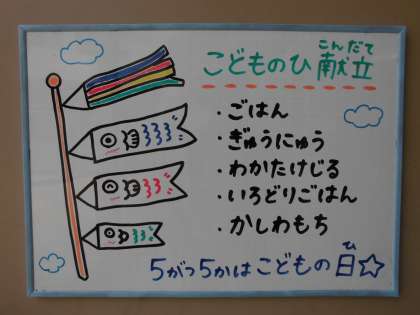 こどものひ献立
こんだて
・ごはん
・ぎゅうにゅう
・わかたけじる
・いろどりごはん
・かしわもち
5がつ5かはこどもの日☆
ひ